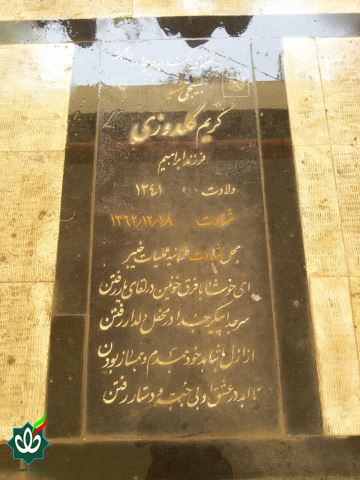 بسیجی شهید
کریم گلدوزی
فرزند ابراهیم
ولادت ۱۳۴۱
شهادت ۱۳۶۲/۱۲/۱۸
محل شهادت طلائیه عملیات خیبر
ای خوشا با فرق خونین در لقای یار رفتن
سر جدا پیکر جدا در محفل دلدار رفتن
از ازل با شاهد خود همدم و همساز بودن
تا ابد در عشق او بی خرقه و دستار رفتن